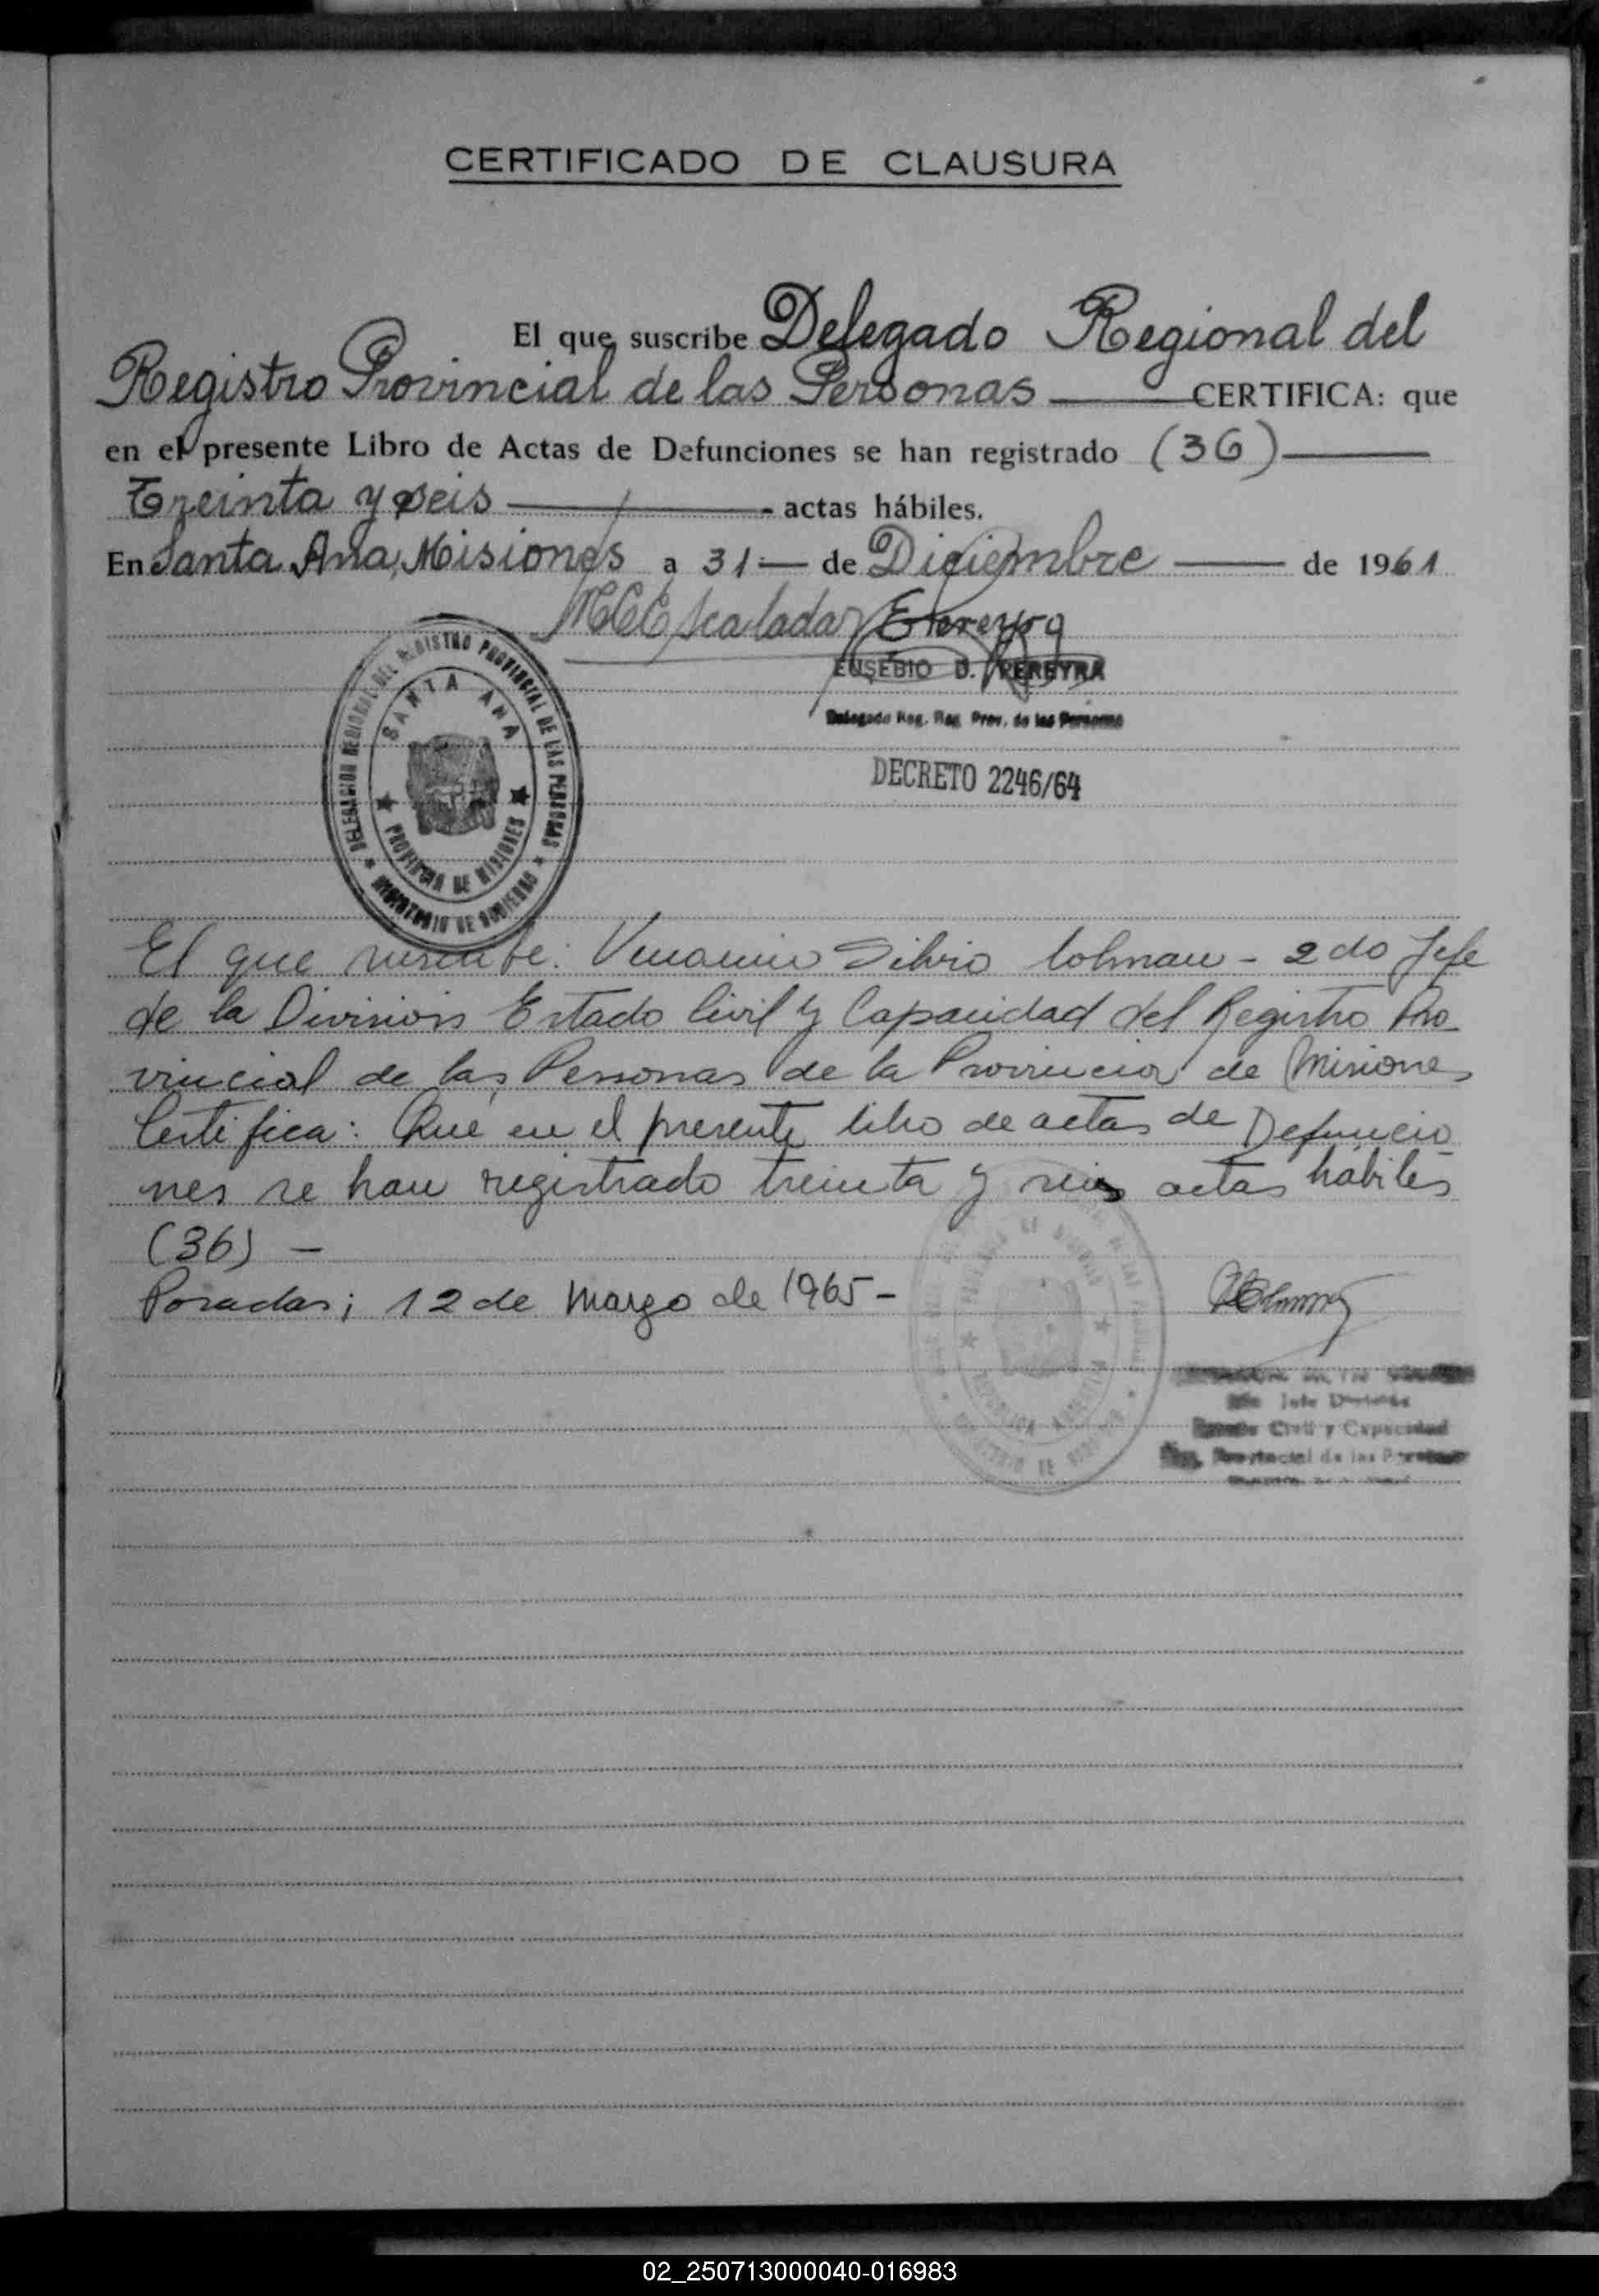 CERTIFICADO DE CLAUSURA
El que suscribe Delegado Regional del
Registro Provincial de las Personas CERTIFICA: que
en el presente Libro de Actas de Defunciones se han registrado (36)
Treinta y seis actas hábiles.
En Santa Ana, Misiones a 31 — de Diciembre — de 1961
Escalada EPereyra
EUSEBIO D. PEREYRA
Delegado Reg. Reg. Prov. de las Personas
DELEGACION REGIONAL DEL REGISTRO PROVINCIAL DE LAS PERSONAS
SANTA ANA
PROVINCIA DE MISIONES
MINISTERIO DE GOBIERNO
DECRETO 2246/64
El que suscribe: Silvio Colman - 2do Jefe
de la Division Estado Civil y Capacidad del Registro Pro
vincial de las Personas de la Provincia de Misiones
Certifica: Que en el presente libro de actas de Defuncio
nes se han registrado treinta y seis actas hábiles
(36) —
Posadas; 12 de Marzo de 1965 -
Jefe División
Civil y Capacidad
Provincial de las Personas
02_250713000040-016983